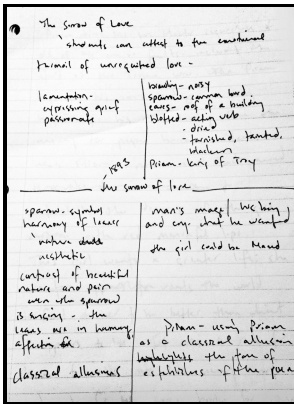 The Sorrow of Love
'students can attest to the emotional
turmoil of unrequited love -
lamentation -
expressing grief
passionate
brawling - noisy
sparrow - common bird
eaves - roof of a building
blotted - acting verb
- dried
- tarnished, tainted,
blacken
Priam - King of Troy
1893
the sorrow of love
sparrow - symbol
harmony of leaves
'nature
aesthetic
contrast of beautiful
nature and pain
even the sparrow
is singing - the
leaves are in harmony
affection
classical allusions
man's image / his being
and cry what he wanted
the girl could be Maud
Priam - using Priam
as a classical allusion
the tone of
establishes if the poem